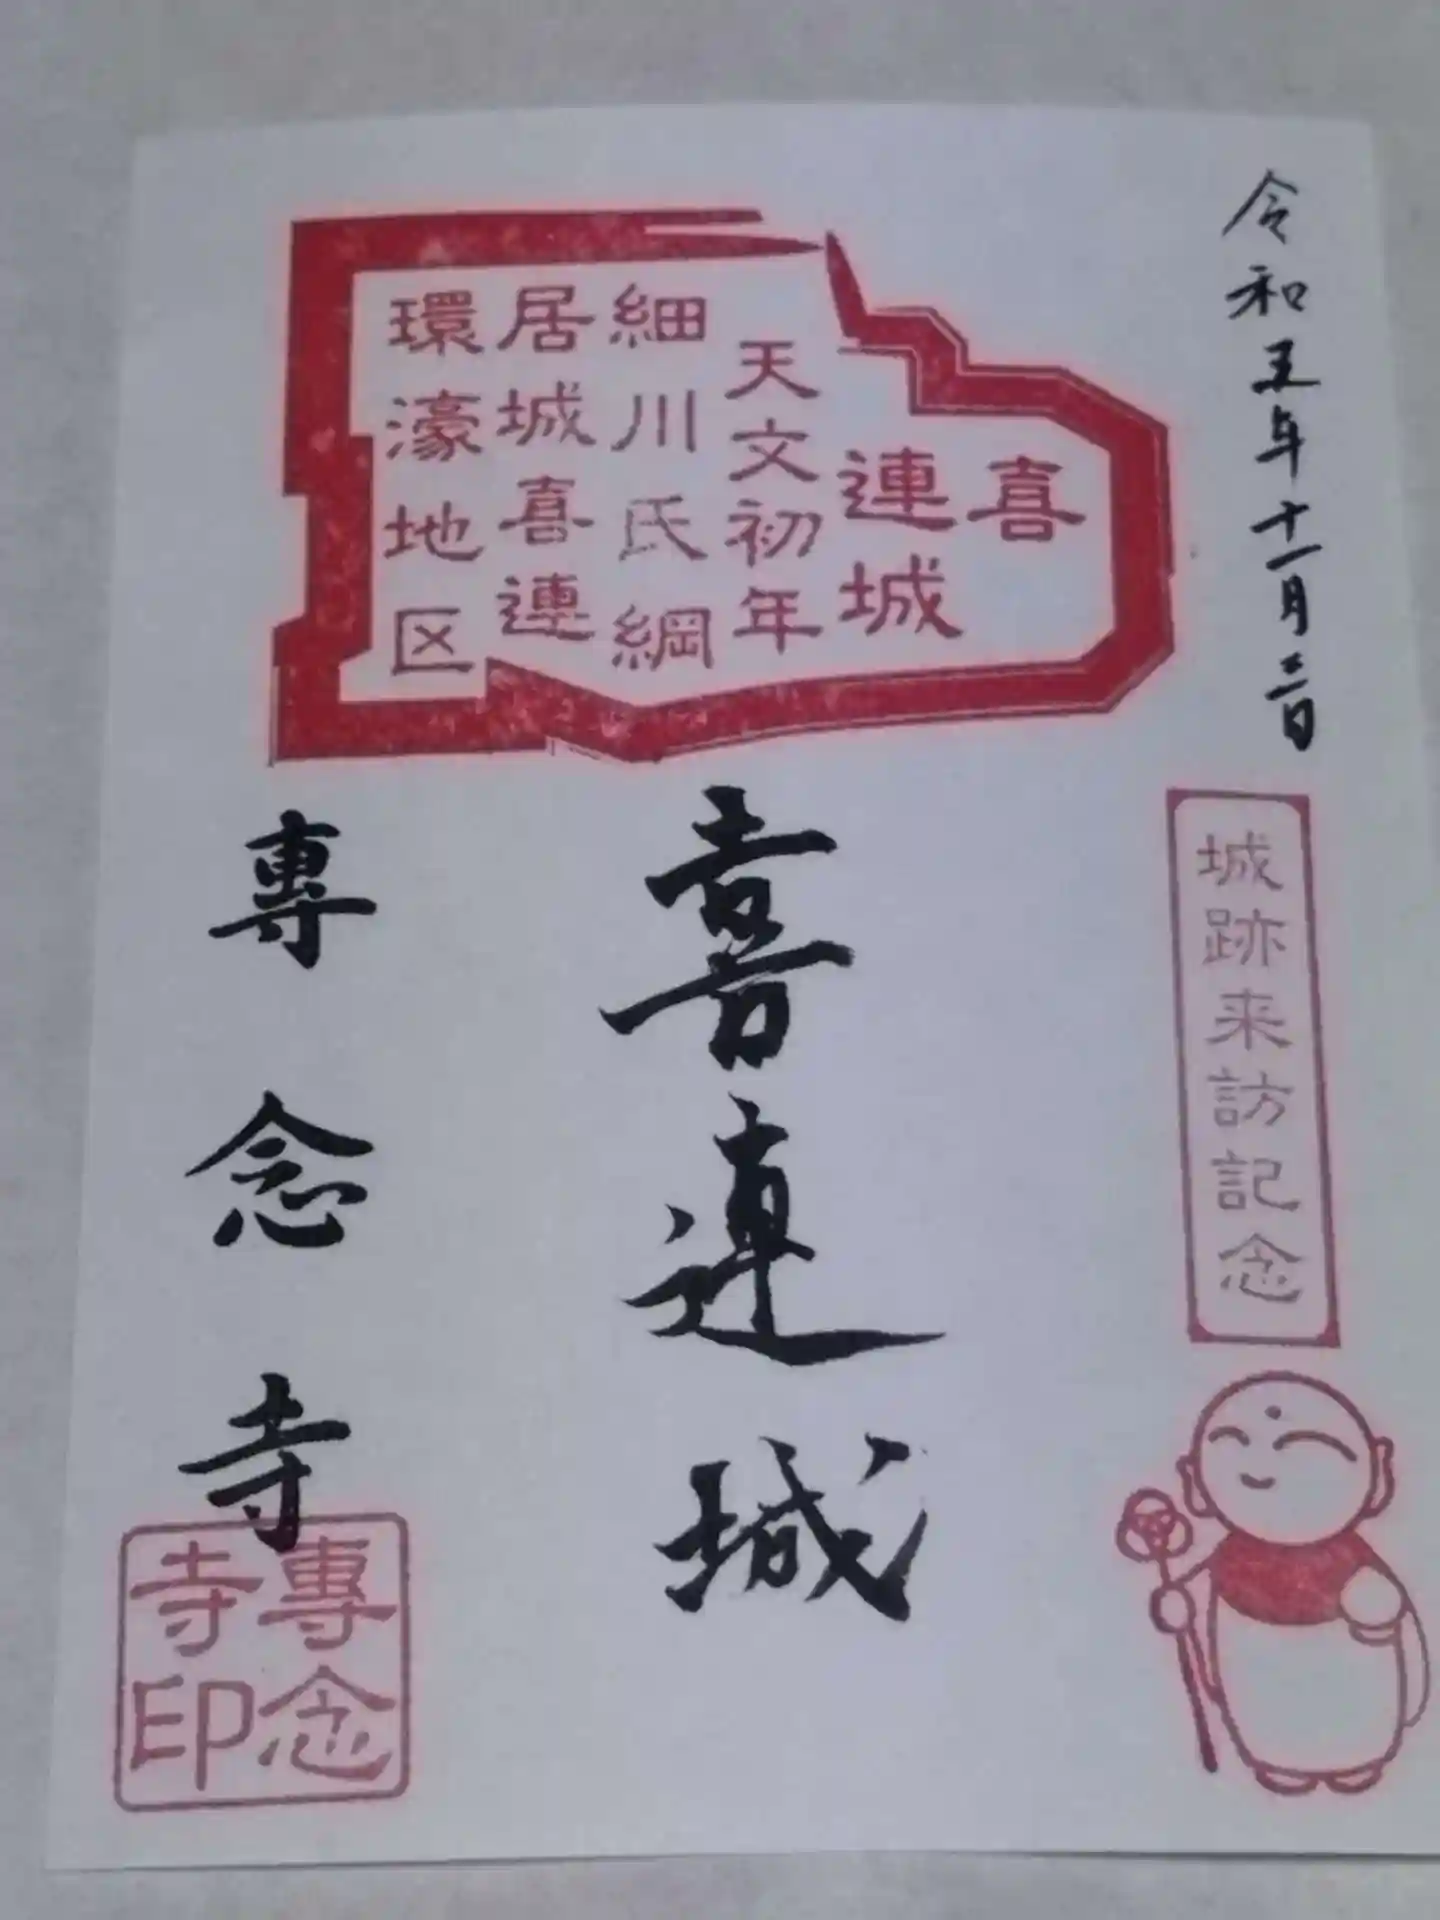 令和五年十一月三日
喜
連城
天文初年
細川氏綱
居城喜連
環濠地区
城跡来訪記念
喜連城
專念寺
專念
寺印